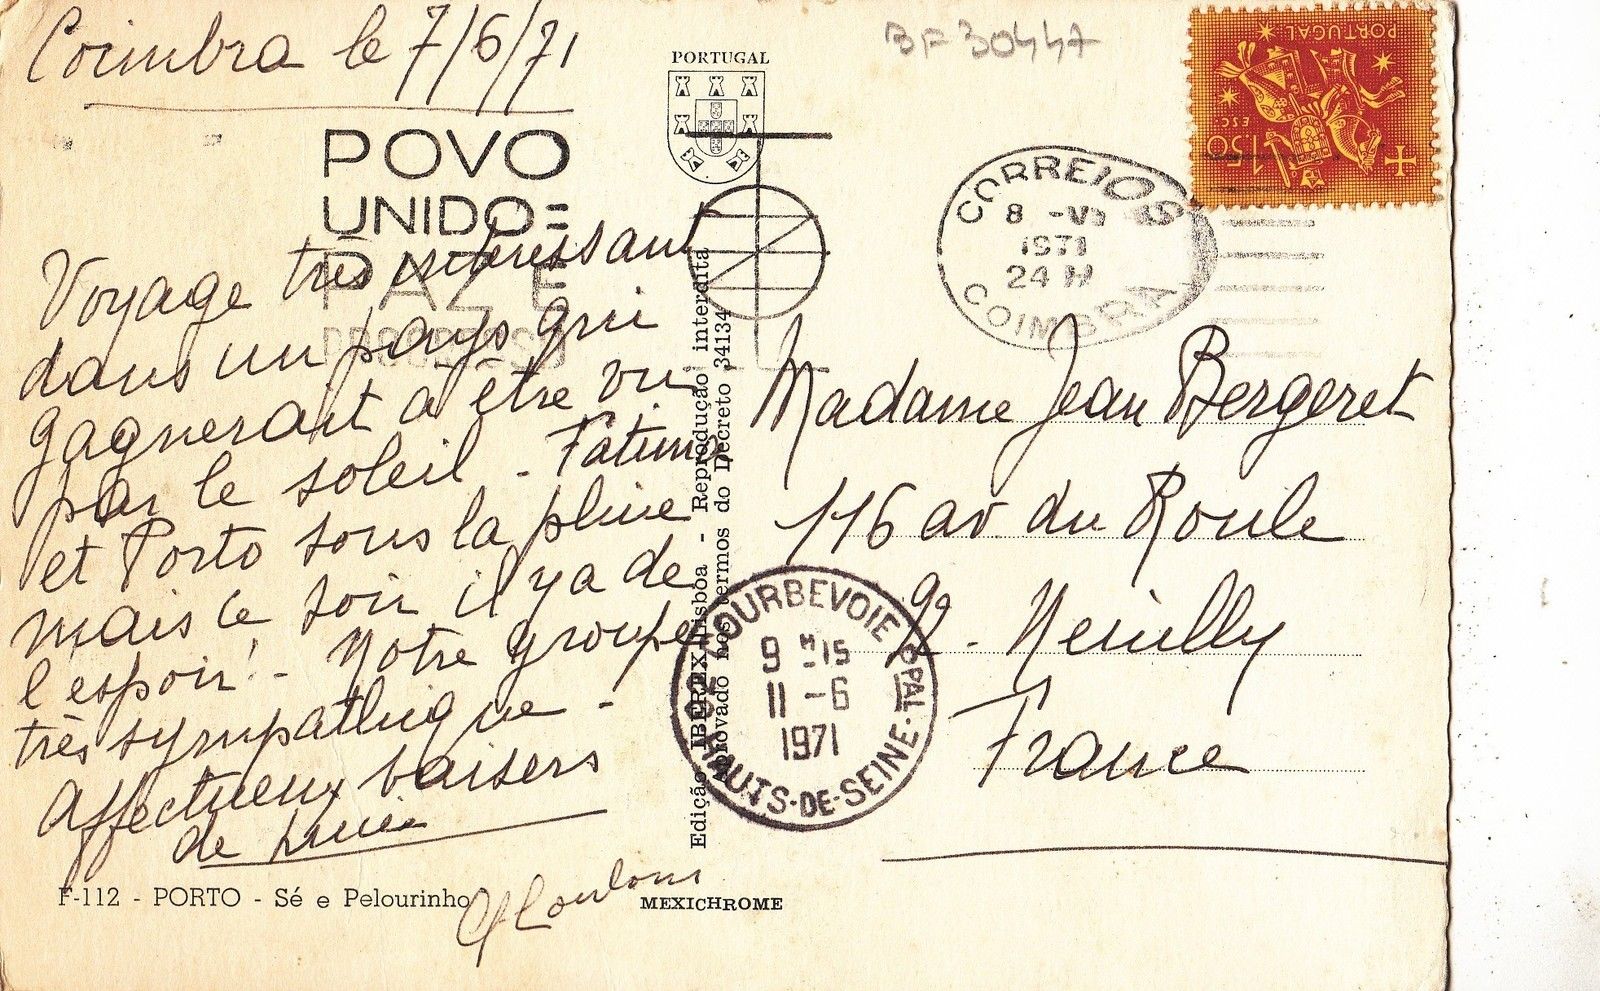 Coimbra le 7/6/71
POVO
UNIDO=
PAZ E
PROGRESSO
Voyage très intéressant
dans un pays qui
gagnerait à être vu
par le soleil - Fatima
et Porto sous la pluie
mais ce soir il y a de
l'espoir! - Notre groupe
très sympathique -
Affectueux baisers
de Lucie
F-112 - PORTO - Sé e Pelourinho
MEXICHROME
PORTUGAL
Edição IBEREX Lisboa - Reprodução interdita
Aprovado nos termos do Decreto 34134
BF 30447
PORTUGAL
1$50
ESC.
CORREIOS
8 -VI
1971
24 H
COIMBRA
Madame Jean Bergeret
116 av. du Roule
92 - Neuilly
France
92 COURBEVOIE PPAL
9 H 15
11 - 6
1971
HAUTS-DE-SEINE